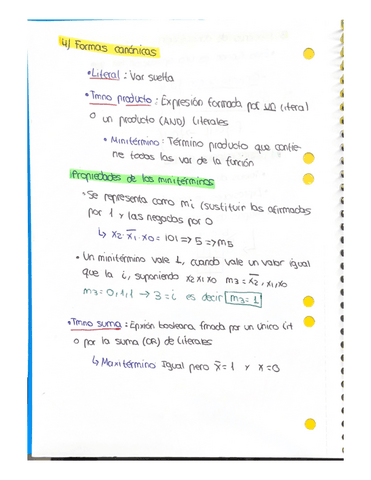 4) Formas canónicas
• Literal: Var suelta
• Tmno producto: Expresión formada por un literal
o un producto (AND) literales
• Minitérmino: Término producto que contie-
ne todas las var de la función
Propiedades de los minitérminos
• Se representa como mi (sustituir las afirmadas
por 1 y las negadas por 0
↳ x2·x̅1·x0 = 101 => 5 => m5
• Un minitérmino vale 1, cuando vale un valor igual
que la i, suponiendo x2 x1 x0 m3 = x̅2, x1, x0
m3 = 0,1,1 → 3 = i es decir m3 = 1
• Tmno suma: booleana por un único
o por la suma (OR) de literales
↳ Maxitérmino Igual pero x̅ = 1 y x = 0